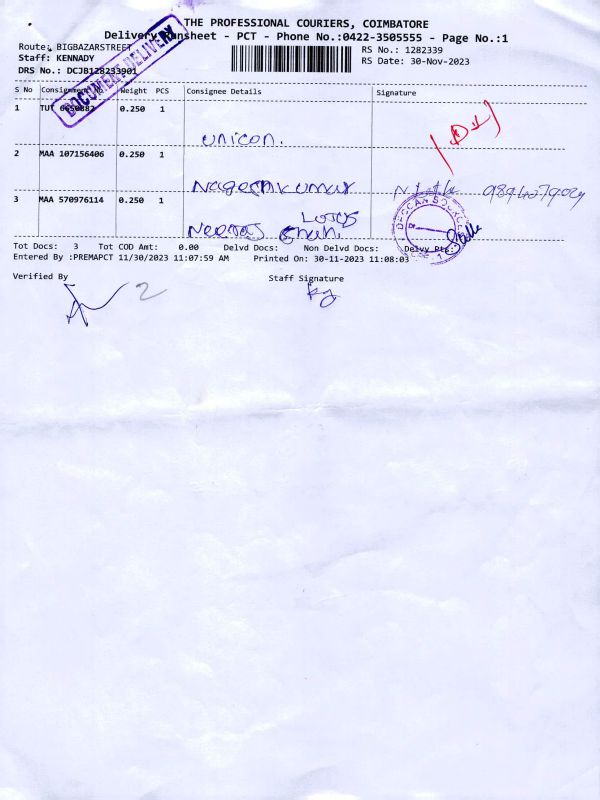 THE PROFESSIONAL COURIERS, COIMBATORE
Delivery Runsheet - PCT - Phone No.:0422-3505555 - Page No.:1
Route: BIGBAZARSTREET
RS No.: 1282339
Staff: KENNADY
RS Date: 30-Nov-2023
DRS No.: DCJB128233901
DOCUMENT DELIVERY
S No Consignment No. Weight PCS Consignee Details Signature
1 TUT 6650882 0.250 1
unicon.
2 MAA 107156406 0.250 1
Nageshkumar 9894079024
3 MAA 570976114 0.250 1
Lotus
Neeraj Shah.
DECCAN
Tot Docs: 3 Tot COD Amt: 0.00 Delvd Docs: Non Delvd Docs: Delvy Pts:
Entered By :PREMAPCT 11/30/2023 11:07:59 AM Printed On: 30-11-2023 11:08:03
Verified By Staff Signature
2